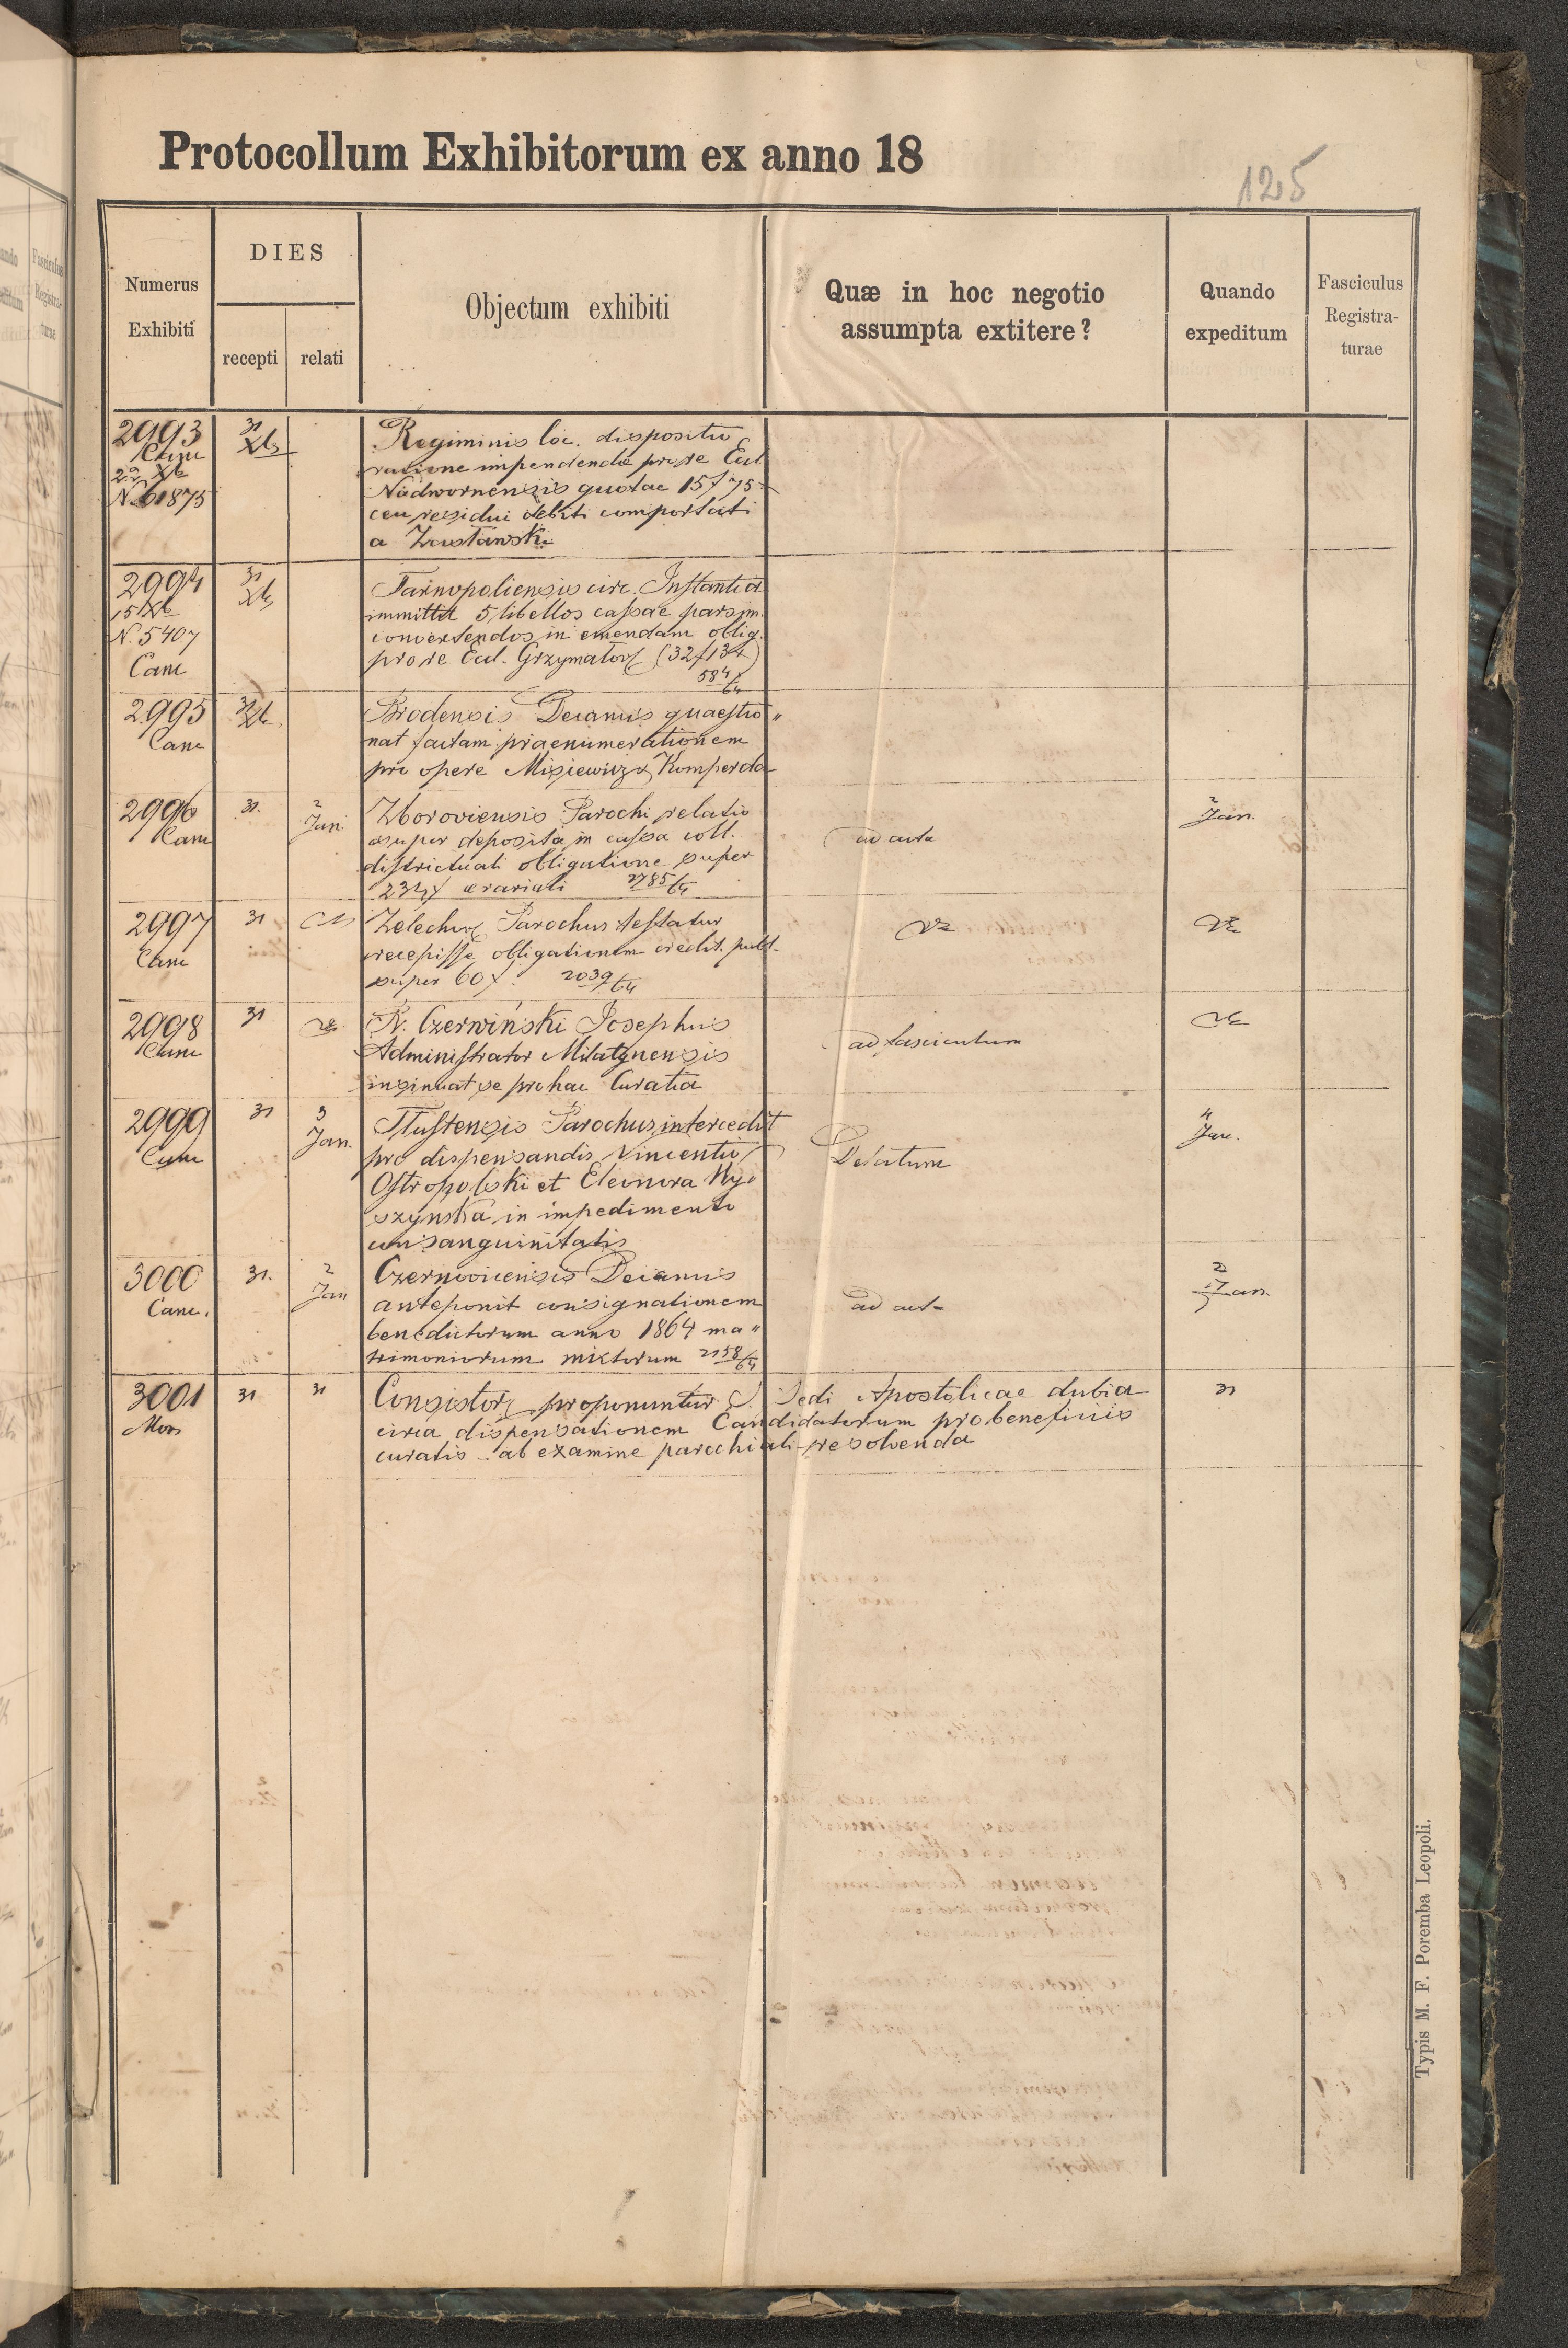 Protocollum Exhibitorum ex anno 18
125
Numerus Exhibiti
DIES
recepti
relati
Objectum exhibiti
Quæ in hoc negotio assumpta extitere?
Quando expeditum
Fasciculus Registra-turae
2993
Canc
22 Xb
N. 61875
31
Xb
Regiminis loc. dispositio
ratione impendendae pro re Eccl
Nadwornensis quotae 15 f 75 x
ceu residui debiti comportati
a Zastawski
2994
15 Xb
N. 5407
Canc
31
Xb
Tarnopoliensis circ. Instantia
immittit 5 libellos cassae parsim.
convertendos in emendam oblig.
pro re Eccl. Grzymałow (32 f 13 x)
584/64
2995
Canc
31
Xb
Brodensis Decanus quaestio"
nat factam praenumerationem
pro opere Misiewicz & Komperda
2996
Canc
31.
2
Jan.
Zboroviensis Parochi relatio
super deposita in cassa coll.
districtuali obligatione super
234 f aerariali 2785/64
ad acta
2
Jan.
2997
Canc
31
Zelechow Parochus testatur
recepisse obligationem credit. publ.
super 60 f. 2039/64
2998
Canc
31
R. Czerwiński Josephus
Administrator Milatynensis
insinuat se pro hac Curatia
ad fasciculum
2999
Canc
31
3
Jan.
Tlustensis Parochus intercedit
pro dispensandis Vincentio
Ostropolski et Eleonora Wy-
szyńska in impedimento
consanguinitatis
Delatum
4
Jan.
3000
Canc.
31.
2
Jan
Czernovicensis Decanus
anteponit consignationem
benedictorum anno 1864 ma"
trimoniorum mixtorum 2158/64
ad acta
2
Jan.
3001
31
31
Consistor proponuntur S. Sedi Apostolicae dubia
circa dispensationem Candidatorum pro beneficiis
curatis ab examine parochiali resolvenda
31
Typis M. F. Poremba Leopoli.